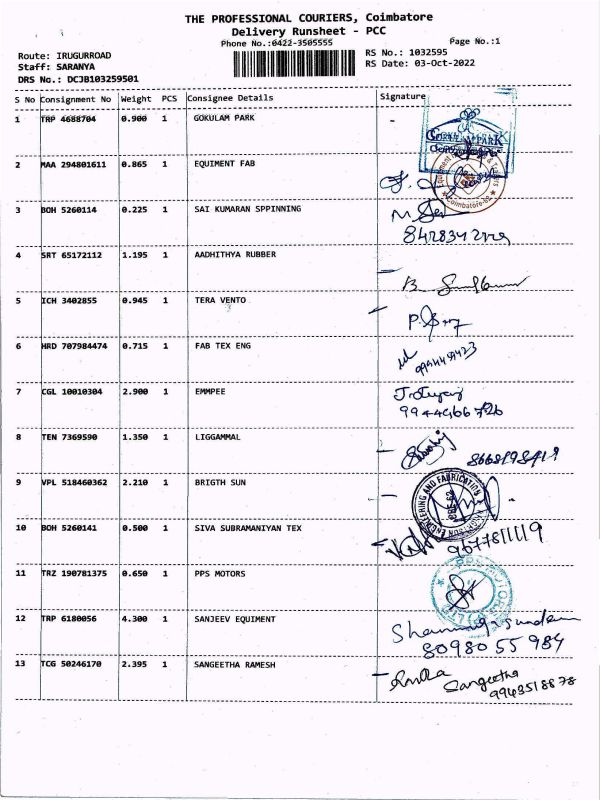 THE PROFESSIONAL COURIERS, Coimbatore
Delivery Runsheet - PCC
Phone No.:0422-3505555
Page No.:1
Route: IRUGURROAD
Staff: SARANYA
DRS No.: DCJB103259501
RS No.: 1032595
RS Date: 03-Oct-2022
S No Consignment No Weight PCS Consignee Details Signature
1 TRP 4688704 0.900 1 GOKULAM PARK
2 MAA 294801611 0.865 1 EQUIMENT FAB
3 BOH 5260114 0.225 1 SAI KUMARAN SPPINNING
4 SRT 65172112 1.195 1 AADHITHYA RUBBER
5 ICH 3402855 0.945 1 TERA VENTO
6 HRD 707984474 0.715 1 FAB TEX ENG
7 CGL 10010304 2.900 1 EMMPEE
9944466726
8 TEN 7369590 1.350 1 LIGGAMMAL
9 VPL 518460362 2.210 1 BRIGTH SUN
10 BOH 5260141 0.500 1 SIVA SUBRAMANIYAN TEX
11 TRZ 190781375 0.650 1 PPS MOTORS
PPS MOTORS
12 TRP 6180056 4.300 1 SANJEEV EQUIMENT
8098055984
13 TCG 50246170 2.395 1 SANGEETHA RAMESH
Sangeetha
9943518878